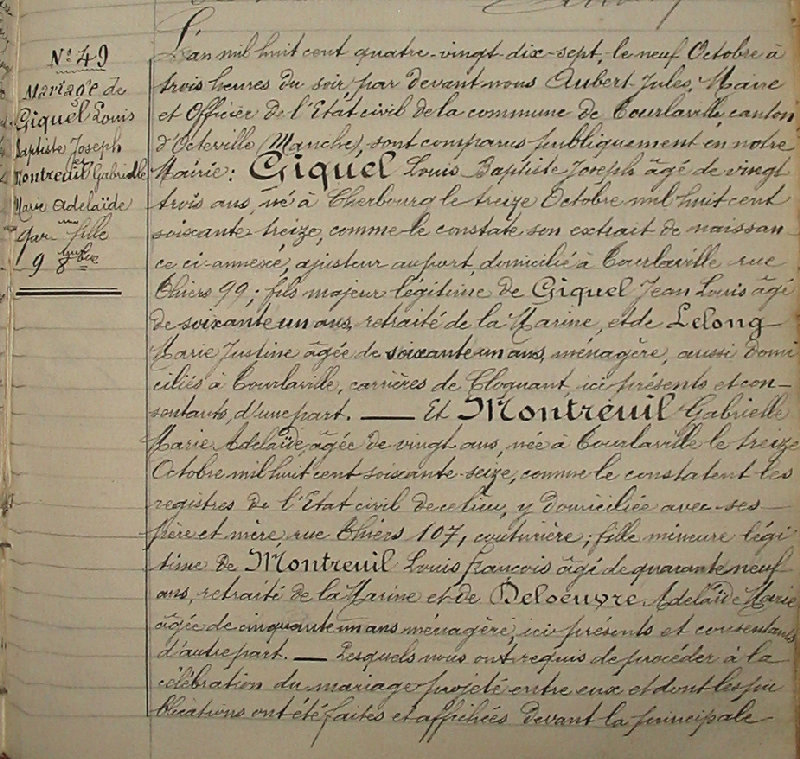 N° 49
Mariage de
Giquel Louis
Baptiste Joseph
et
Montreuil Gabrielle
Marie Adelaïde
gar on fille
9 8bre
L'an mil huit cent quatre-vingt-dix-sept, le neuf Octobre à
trois heures du soir par devant nous Aubert Jules, Maire
et Officier de l'Etat civil de la commune de Tourlaville, canton
d'Octeville (Manche), sont comparus publiquement en notre
Mairie: Giquel Louis Baptiste Joseph âgé de vingt
trois ans, né à Cherbourg le treize Octobre mil huit cent
soixante treize, comme le constate son extrait de naissan-
ce ci-annexé, ajusteur au port, domicilié à Tourlaville rue
Thiers 99; fils majeur légitime de Giquel Jean Louis âgé
de soixante un ans, retraité de la Marine, et de Lelong
Marie Justine âgée de soixante un ans, ménagère, aussi domi
ciliés à Tourlaville, carrières de Cloquant, ici présents et con-
sentants, d'une part. — Et Montreuil Gabrielle
Marie Adelaïde, âgée de vingt ans, née à Tourlaville le treize
Octobre mil huit cent soixante-seize, comme le constatent les
registres de l'Etat civil de ce lieu, y domiciliée avec ses
père et mère rue Thiers 107, couturière; fille mineure légi
time de Montreuil Louis François âgé de quarante neuf
ans, retraité de la Marine et de Deloeuvre Adelaïde Marie
âgée de cinquante un ans ménagère, ici présents et consentants
d'autre part. — Lesquels nous ont requis de procéder à la
célébration du mariage projeté entre eux et dont les pu
blications ont été faites et affichées devant la principale